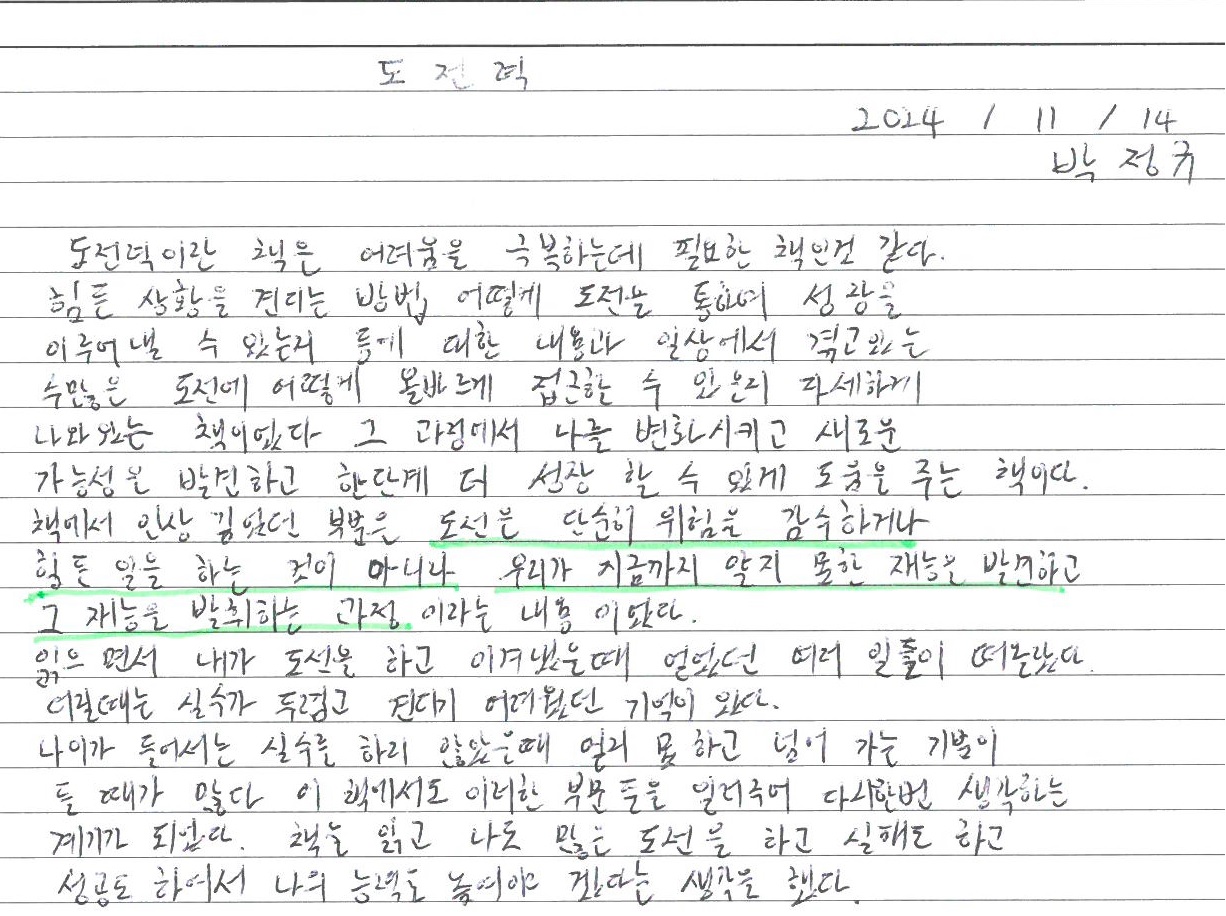 도전력
2024 / 11 / 14
박정규
도전력이란 책은 어려움을 극복하는데 필요한 책인것 같다.
힘든 상황을 견디는 방법, 어떻게 도전을 통하여 성장을
이루어낼 수 있는지 등에 대한 내용과 일상에서 겪고있는
수많은 도전에 어떻게 올바르게 접근할 수 있는지 자세하게
나와있는 책이었다 그 과정에서 나를 변화시키고 새로운
가능성을 발견하고 한단계 더 성장 할 수 있게 도움을 주는 책이다.
책에서 인상 깊었던 부분은 도전은 단순히 위험을 감수하거나
힘든 일을 하는 것이 아니라 우리가 지금까지 알지 못한 재능을 발견하고
그 재능을 발휘하는 과정 이라는 내용 이었다.
읽으면서 내가 도전을 하고 이겨냈을때 얻었던 여러 일들이 떠올랐다.
어릴때는 실수가 두렵고 견디기 어려웠던 기억이 있다.
나이가 들어서는 실수를 하지 않았을때 얻지 못하고 넘어 가는 기분이
들 때가 많다 이 책에서도 이러한 부분들을 알려주어 다시한번 생각하는
계기가 되었다. 책을 읽고 나도 많은 도전을 하고 실패도 하고
성공도 하여서 나의 능력도 높여야 겠다는 생각을 했다.